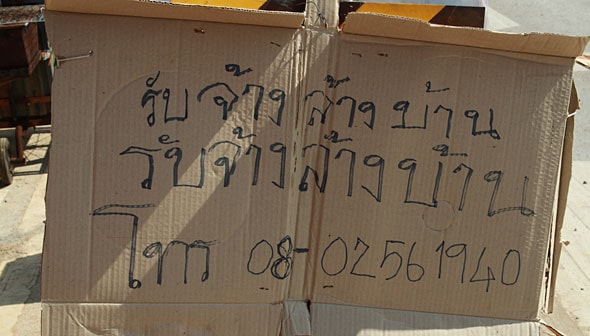 รับจ้างล้างบ้าน
รับจ้างล้างบ้าน
โทร 08-02561940